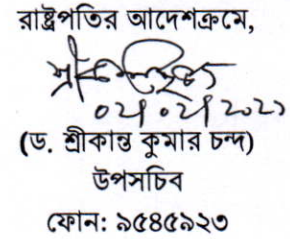 রাষ্ট্রপতির আদেশক্রমে,
(ড. শ্রীকান্ত কুমার চন্দ)
উপসচিব
ফোন: ৯৫৪৫৯২৩